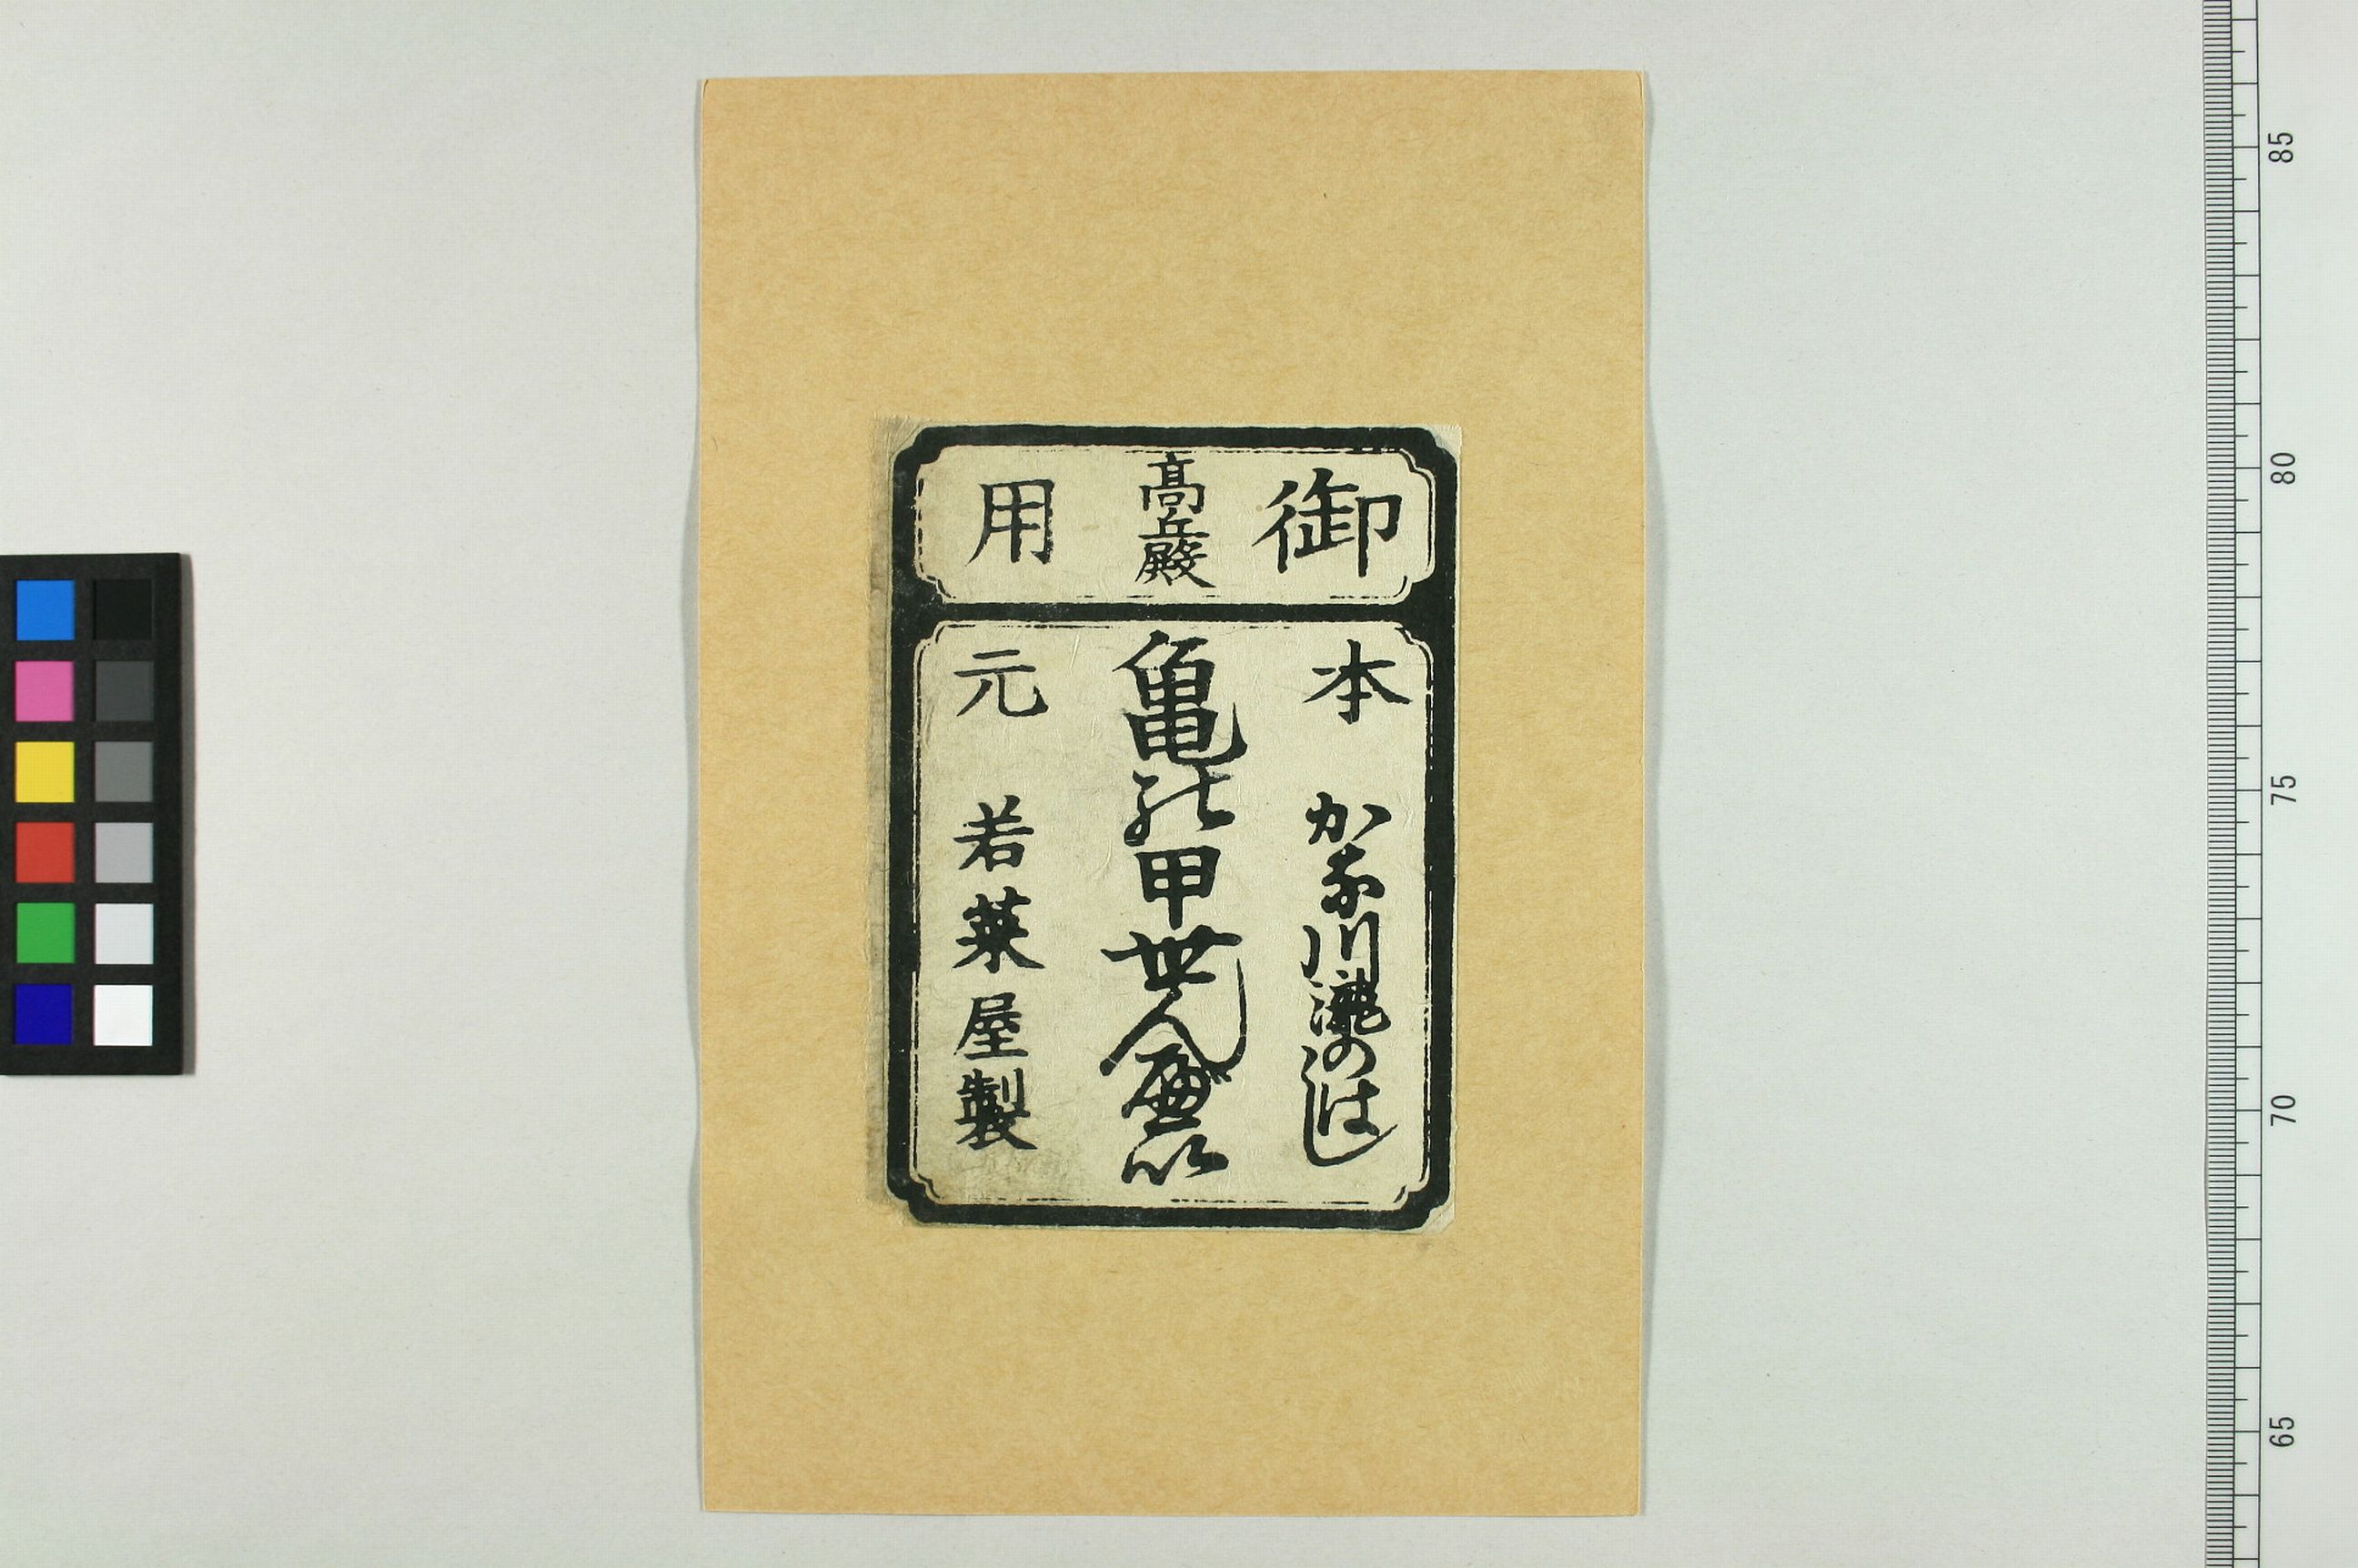 御
髙丘殿
用
本 かな川瀧のはし
亀の甲せんべい
元 若菜屋製
85
80
75
70
65